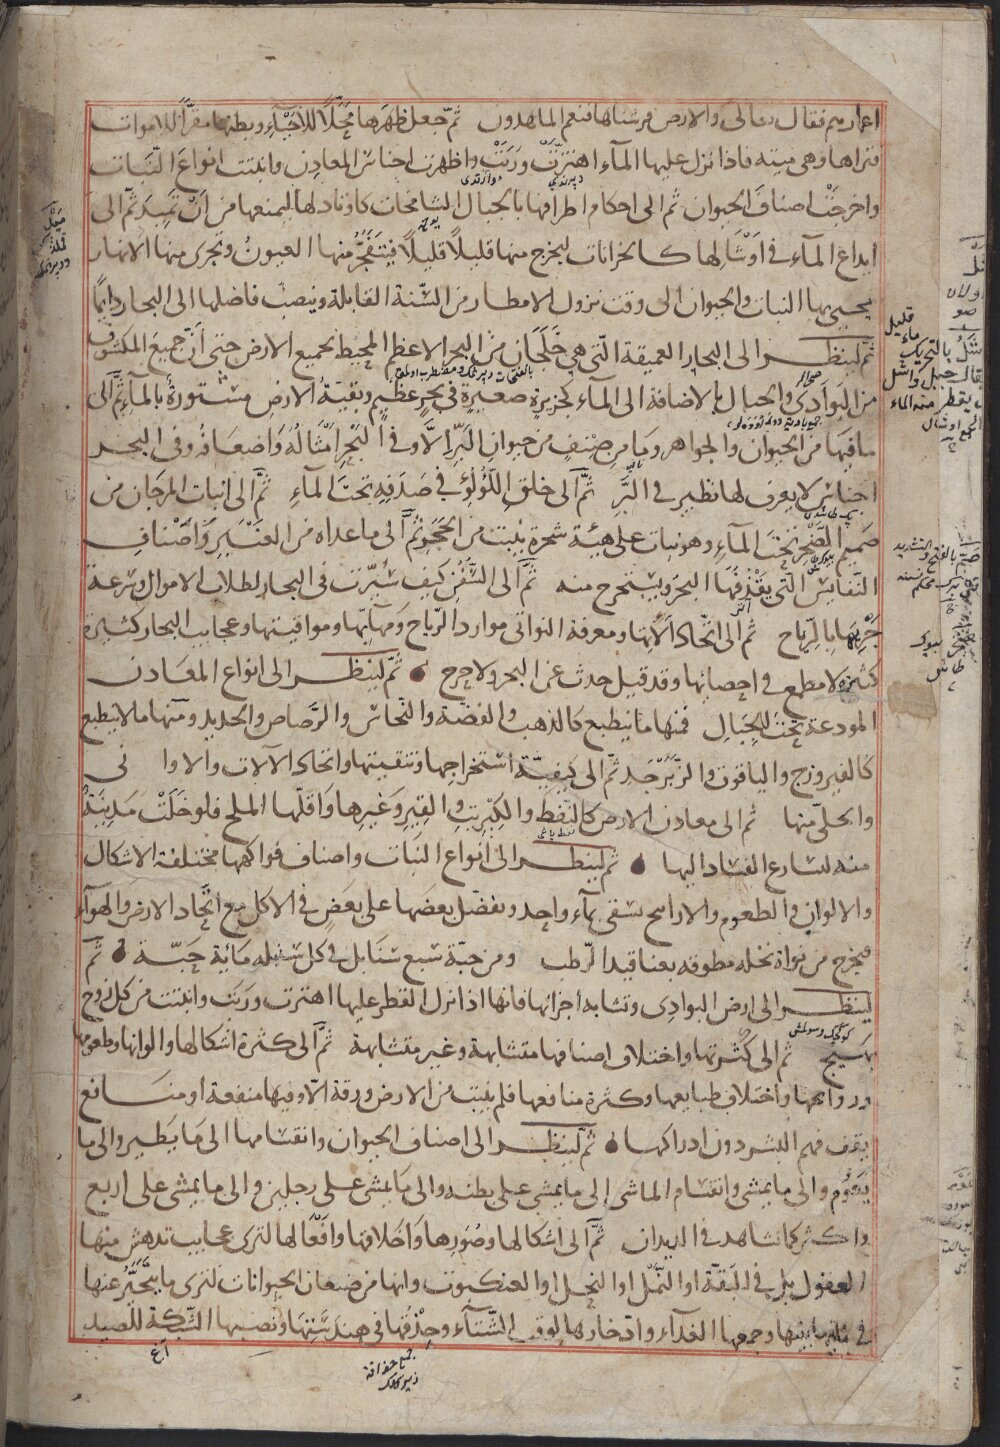 اعمارهم فقال تعالى والارض فرشناها فنعم الماهدون ثمّ جعل ظهرها محلّا للاحياء وبطنها مقرّا للاموات
فتراها وهي ميته فاذا نزل عليها المآء اهتزّت وربت واظهرت اجناس المعادن وانبتت انواع النبات
واخرجت اصناف الحيوان ثم الى احكام اطرافها بالجبال الشامخات كاوتاد لها ليمنعها من ان تميد ثمّ الى
ايداع المآء في اوشالها كالخزانات ليخرج منها قليلاً قليلاً فيتفجّر منها العيون وتجرى منها الانهار
يحيى بها النبات والحيوان الى وقت نزول الامطار من السّنة القابلة وينصبّ فاضلها الى البحار دايماً
ثمّ لينظر الى البحار العميقة الّتي هي خلجان من البحر الاعظم المحيط بجميع الارض حتى انّ جميع المكشوف
من البوادى والجبال بالاضافة الى المآء كجزيرة صغيرة في بحرٍ عظيمٍ وبقيّة الارض مستورة بالمآء ثمّ الى
ما فيها من الحيوان والجواهر وما من صنفٍ من حيوان البرّ الّا وفي البحر امثاله واضعافه وفي البحر
اجناس لا يعرف لها نظير في البرّ ثمّ الى خلق اللّؤلؤ في صدفه تحت المآء ثمّ الى انبات المرجان من
صميم الصّخر تحت المآء وهو نبات على هيئة شجرة ينبت من الحجر ثمّ الى ما عداه من العنبر واصناف
النّفايس الّتى يقذفها البحر ويستخرج منه ثمّ الى السّفن كيف سيّرت في البحار لطلاب الاموال وسرعة
جريها بالرّياح ثم الى اتّخاد الاتها ومعرفة النواتى موارد الرّياح ومهابّها ومواقيتها وعجايب البحار كثيرة
كثرة لا مطمع في احصائها وقد قيل حدث عن البحر ولا حرج ثمّ لينظر الى انواع المعادن
المودعة تحت الجبال فمنها ما ينطبع كالذهب والفضة والنّحاس والرّصاص والحديد ومنها ما لا ينطبع
كالفيروزج والياقوت والزّبرجد ثم الى كيفيّة استخراجها وتنقيتها واتخاد الآلات والاوانى
والحلىّ منها ثم الى معادن الارض كالنّفط والكبريت والقير وغيرها واقلّها الملح فلو خلت مدينة
منه لتسارع الفساد اليها ثم لينظر الى انواع النبات واصناف فواكهها مختلفة الاشكال
والالوان في الطعوم والارايح سقى بمآء واحد وتفضل بعضها على بعض في الاكل مع اتّحاد الارض والهوآء
فيخرج من نواة نخله مطوقه بعناقيد الرّطب ومن حبّة سبع سنابل في كل سنبله مائة حبّة ثم
لينظر الى ارض البوادى وتشابه اجزائها فانها اذا نزل القطر عليها اهتزت وربت وانبتت من كل زوج
بهيج ثم الى كثرتها واختلاف اصنافها متشابهة وغير متشابهة ثمّ الى كثرة اشكالها والوانها وطعومها
وروائحها واختلاف طبايعها وكثرة منافعها فلم ينبت من الارض ورقة الّا وفيها منفعة او منافع
يقف فهم البشر دون ادراكها ثمّ لينظر الى اصناف الحيوان وانقسامها الى ما يطير والى ما
يقوم والى ما يمشى وانقسام الماشى الى ما يمشى على بطنه والى ما يمشى على رجلين والى ما يمشى على اربع
واكثر كما تشاهد في الديدان ثمّ الى اشكالها وصورها واخلاقها وافعالها لترى عجايب تدهش منها
العقول بل في البقّة او النّمل او النحل او العنكبوت وانها من ضعاف الحيوانات لترى ما يتحيّر عنها
في بنايها بيتها وجمعها الغذآء وادّخارها لوقت الشّتآء وحذقها في هندستها ونصبها الشّبكة للصيد